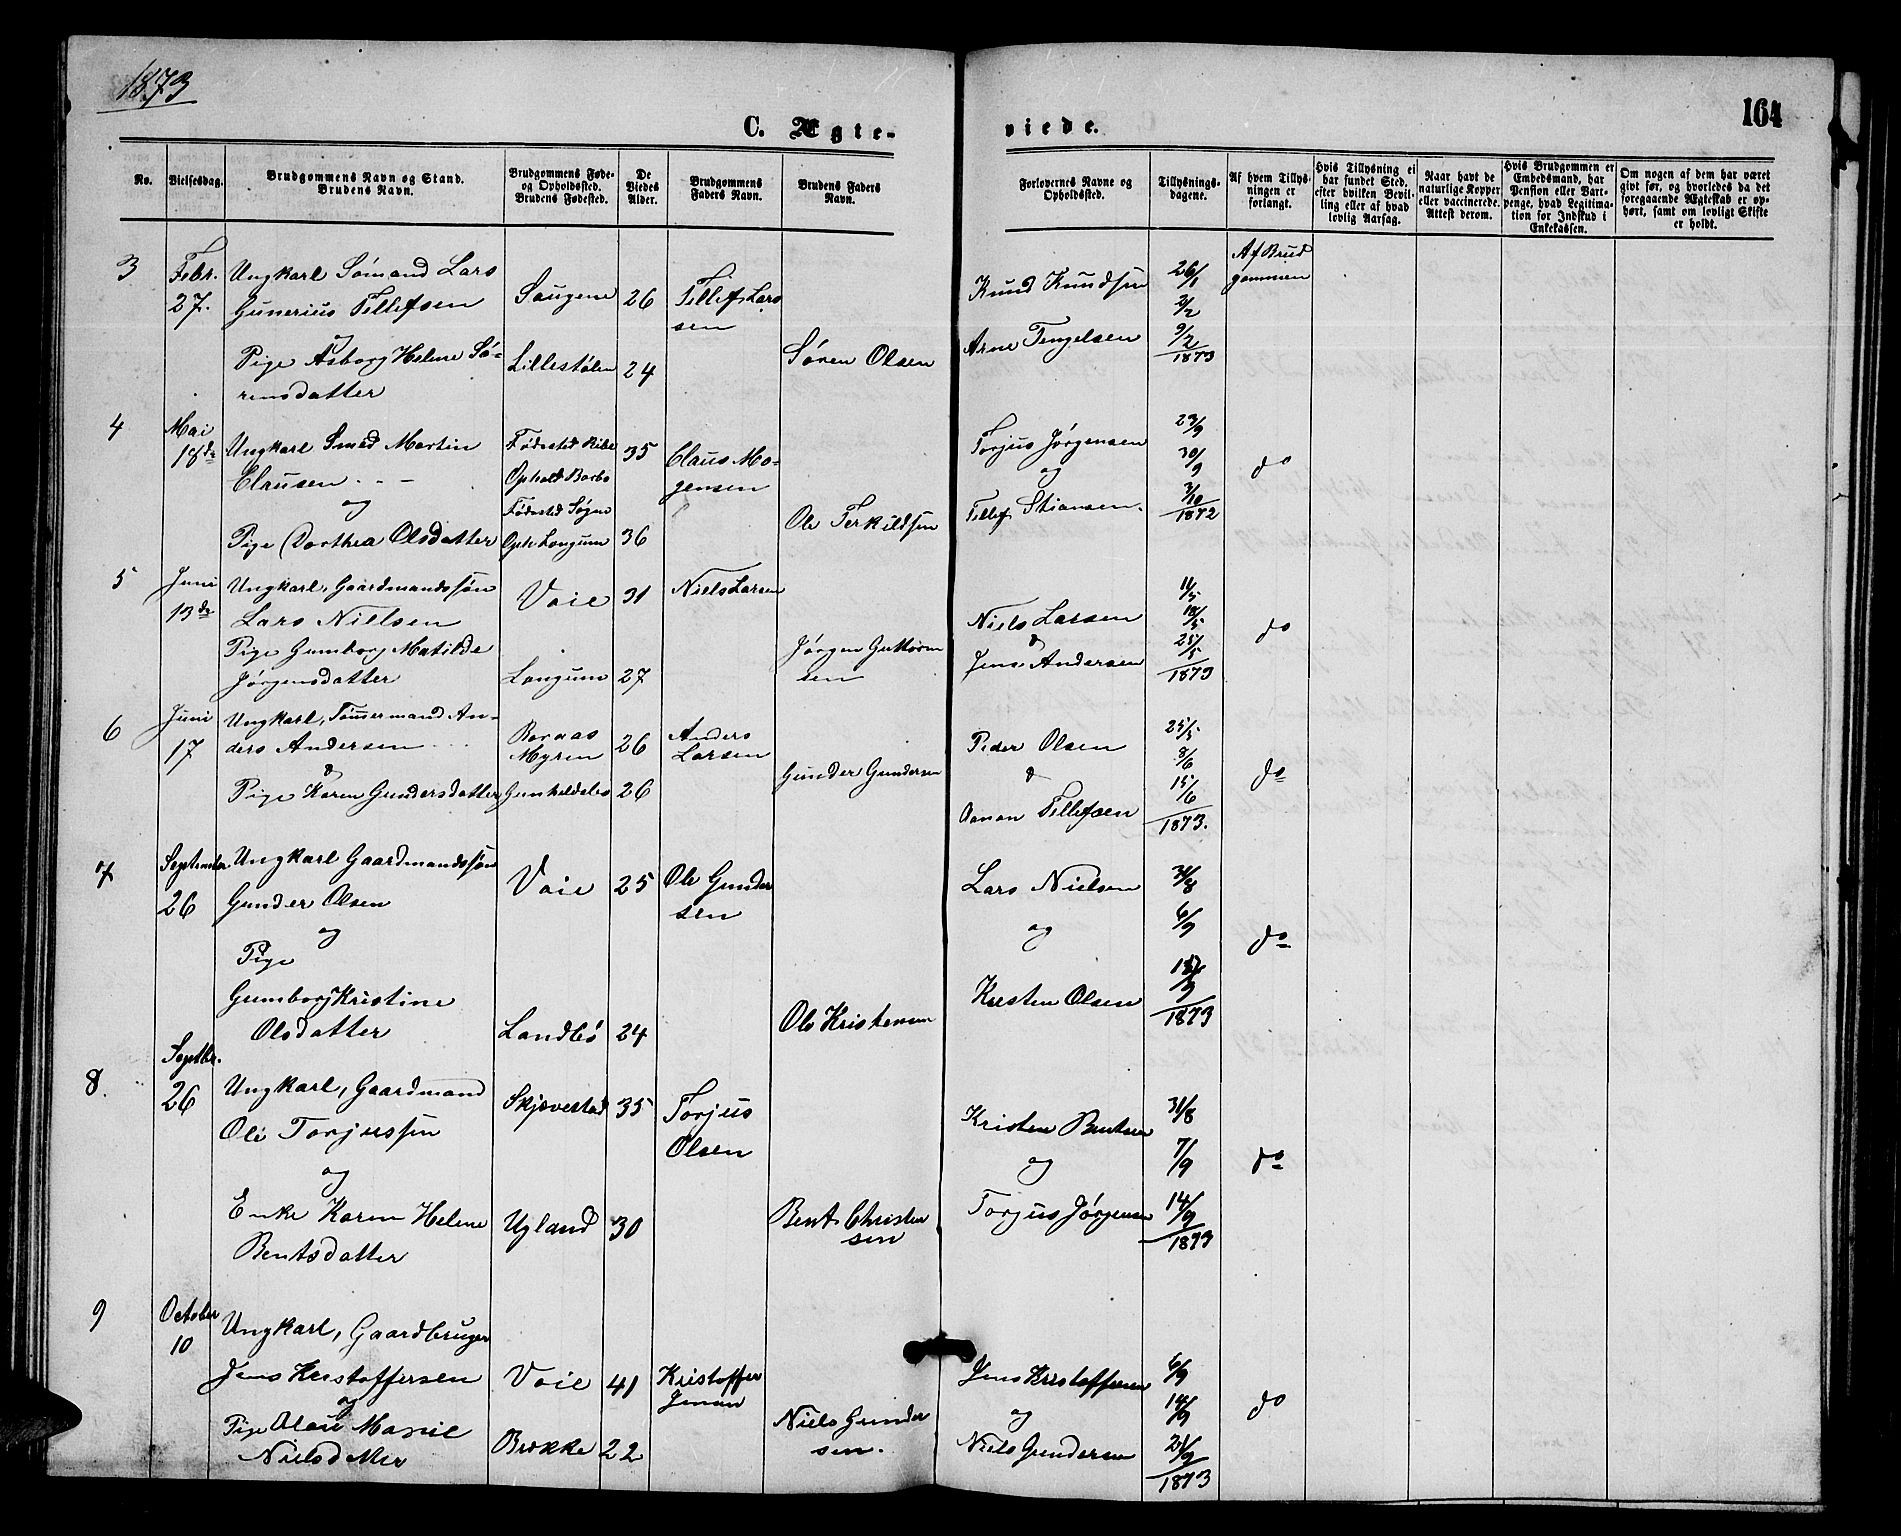 1873
164
C. Ægte-
viede.
No.
Vielsesdag.
Brudgommens Navn og Stand.
Brudens Navn.
Brudgommens Føde-
og Opholdssted.
Brudens Fødested.
De
Viedes
Alder.
Brudgommens
Faders Navn.
Brudens Faders
Navn.
Forlovernes Navne og
Opholdssted.
Tillysnings-
dagene.
Af hvem Tillys-
ningen er
forlangt.
Hvis Tillysning ei
har fundet Sted,
efter hvilken Bevil-
ling eller af hvad
lovlig Aarsag.
Naar havt de
naturlige Kopper
eller vaccinerede.
Attest derom.
Hvis Brudgommen er
Embedsmand, har
Pension eller Vart-
penge, hvad Legitima-
tion for Indskud i
Enkekassen.
Om nogen af dem har været
givt før, og hvorledes da det
foregaaende Ægteskab er op-
hørt, samt om lovligt Skifte
er holdt.
3
Febr.
27.
Ungkarl Sømand Lars
Gunerius Tellefsen
og
Pige Asborg Helene Sø-
rensdatter
Saugene
Lillestølen
26
24
Tellef Lars
sen
Søren Olsen
Knud Knudsen
Arne Tengelsen
26/1
2/2
9/2
1873
Af Brud
gommen
4
Mai
18de
Ungkarl Smed Martin
Clausen
og
Pige Dorthea Olsdatter
Fødested Ribe
Ophold Barbo
Fødested Søgne
Oph Longum
35
36
Claus Mo-
gensen
Ole Terkildsen
Torjus Jørgensen
og
Tellef Stiansen.
23/9
30/9
3/10
1872
do
5
Juni
13de
Ungkarl, Gaardmandssøn
Lars Nielsen
Pige Gumborg Matilde
Jørgensdatter
Vaie
Longum
31
27
Niels Larsen
Jørgen Guttorm
sen
Niels Larsen
&
Jens Andersen
11/5
18/5
25/5
1873
do
6
Juni
17
Ungkarl, Tømmermand An-
ders Andersen
&
Pige Karen Gundersdatter
Boraas
Myren
26
26
Anders
Larsen
Gunder Gundersen
Peder Olsen
&
Tellefsen
25/5
8/6
15/6
1873.
do
7
September
26
Ungkarl Gaardmandssøn
Gunder Olsen
og
Pige
Gumborg Kristine
Olsdatter
Vaie
Landbø
25
24
Ole Gunder
sen
Ole Kristensen
Lars Nielsen
og
Kristen Olsen
31/8
6/9
1873
do
8.
Septbr.
26
Ungkarl, Gaardmand
Ole Torjussen
og
Enke Karen Helene
Bentsdatter
Skjævestad
Ugland
35
30
Torjus
Olsen
Bent Christen
sen
Kristen Bentsen
og
Torjus Jørgensen
31/8
7/9
14/9
1873
do
9
October
10
Ungkarl, Gaardbruger
Jens Kristoffersen
og
Pige Marie
Vaie
Brække
41
22
Kristoffer
Jensen
Niels Gunder
sen.
Jens Kristoffersen
og
Niels Gundersen
6/9
14/9
21/9
1873
do